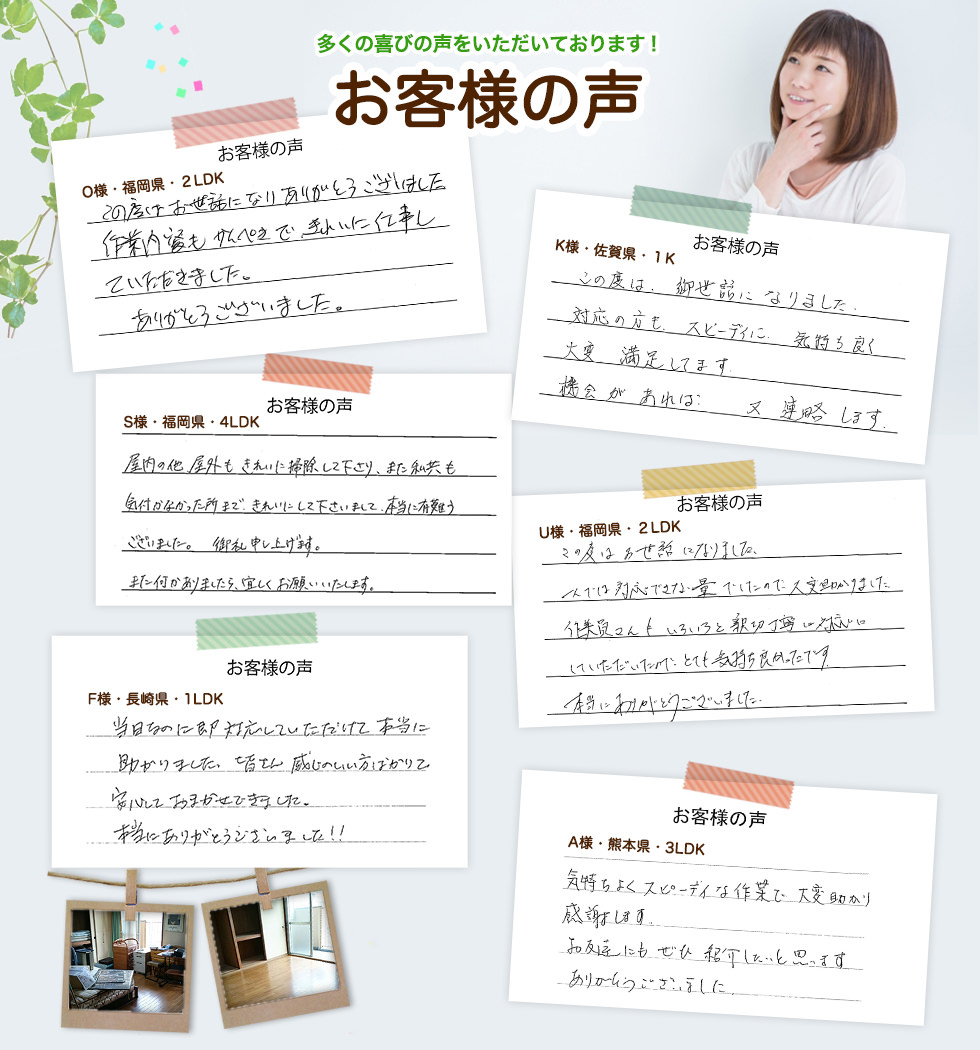 多くの喜びの声をいただいております！
お客様の声
お客様の声
O様・福岡県・2LDK
この度はお世話になりありがとうございました
作業内容もかんぺきで、きれいに仕事し
ていただきました。
ありがとうございました。
お客様の声
K様・佐賀県・1K
この度は、御世話になりました.
対応の方も、スピーディに、気持ち良く
大変 満足してます.
機会が あれば 又 連略 します.
お客様の声
S様・福岡県・4LDK
屋内の他 屋外も きれいに掃除して下さり、また私共も
気付かなかった所まで、きれいにして下さいまして、本当に有難う
ございました。 御礼申し上げます。
また何かありましたら、宜しくお願いいたします。
お客様の声
U様・福岡県・2LDK
この度はお世話になりました、
人では対応できない量でしたので大変助かりました
作業員さんもいろいろと親切丁寧に対応に
していただいたので、とても気持ち良かったです.
本当にありがとうございました.
お客様の声
F様・長崎県・1LDK
当日なのに即対応していただけて 本当に
助かりました、皆さん 感じのいい方ばかりで
安心しておまかせできました。
本当にありがとうございました!!
お客様の声
A様・熊本県・3LDK
気持ちよくスピーディな作業で 大変助かり
感謝します.
お友達にも ぜひ 紹介したいと思います
ありがとうございました.